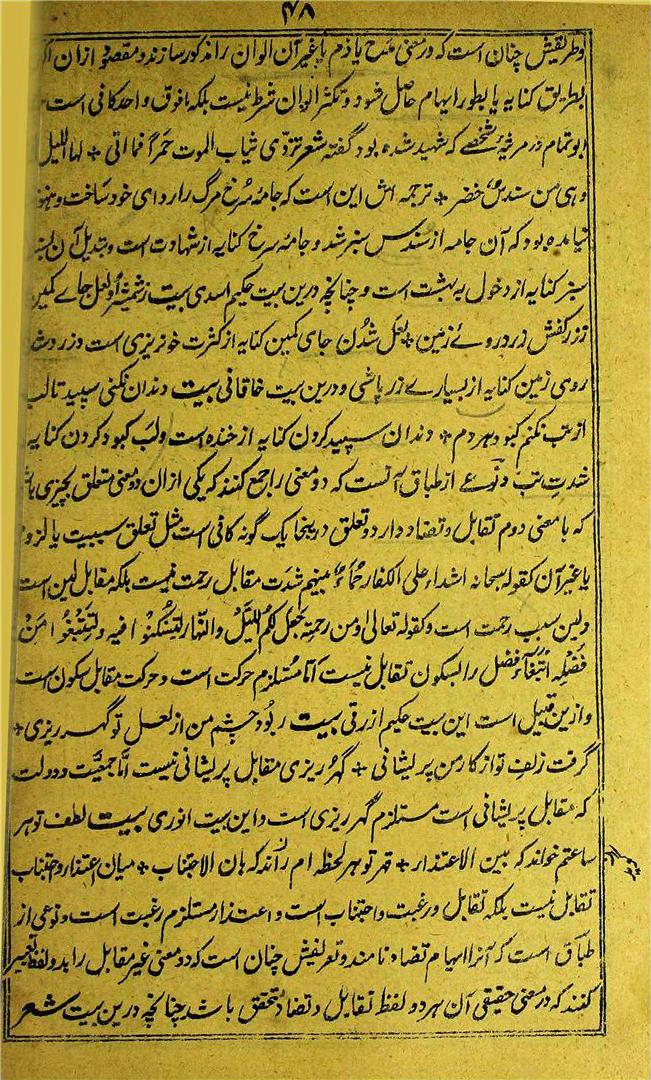 ۴۸
وطریقش چنان است که در معنی مدح یا ذم یا غیر آن الوان را مذکور سازند و مقصود ازان
بطریق کنایه یا بطور ایهام حاصل شود و تکثر الوان شرط نیست بلکه مافوق واحد کافی است
ابو تمام در مرثیه شخصے که شهید شده بود گفته شعر تردّی ثیاب الموت حمراً فما اتی + لها اللیل
وهی من سندس خضر + ترجمه اش این است که جامهٔ سرخ مرگ را ردای خود ساخت و هنوز
نیامده بود که آن جامه از سندس سبز شد و جامهٔ سرخ کنایه از شهادت است و تبدیل آن
سبز کنایه از دخول به بهشت است و چنانچه درین بیت حکیم اسدی بیت ز شمشیر او لعل جاے کمین
ز زر کفش زرد روئے زمین + لعل شدن جای کمین کنایه از کثرت خونریزی است و زرد شدن
روی زمین کنایه از بسیارے زر پاشی و درین بیت خاقانی بیت دندان نکنی سپید تا لب
از تب نکنم کبود هر دم + دندان سپید کردن کنایه از خنده است و لب کبود کردن کنایه
شدت تب و نوعے از طباق آنست که دو معنی را جمع کنند که یکی ازان دو معنی متعلق بچیزی
که با معنی دوم تقابل و تضاد دارد و تعلق درینجا یک گونه کافی است مثل تعلق سببیت یا لزوم
یا غیر آن کقوله سبحانه اشداء علی الکفار رحماء بینهم شدت مقابل رحمت نیست بلکه مقابل لین است
ولین سبب رحمت است و کقوله تعالیٰ ومن رحمته جعل لکم اللیل والنهار لتسکنوا فیه ولتبتغوا من
فضله ابتغاء فضل را با سکون تقابل نیست اما مستلزم حرکت است و حرکت مقابل سکون است
و ازین قبیل است این بیت حکیم ازرقی بیت ربود چشم من از لعل تو گهر ریزی +
گرفت زلف تو از کار من پریشانی + گهر ریزی مقابل پریشانی نیست اما جمعیت و دولت
که مقابل پریشانی است مستلزم گهر ریزی است و این بیت انوری بیت لطف تو هر
ساعتم خواند که بین الاعتذار + قهر تو هر لحظه ام راند که هان الاجتناب + میان اعتذار و اجتناب
تقابل نیست بلکه تقابل و رغبت و اجتناب است و اعتذار مستلزم رغبت است و نوعی از
طباق است که آنرا ایهام تضاد نامند و تعریفش چنان است که دو معنی غیر مقابل را بدو لفظ تعبیر
کنند که در معنی حقیقی آن هر دو لفظ تقابل و تضاد متحقق باشد چنانچه درین بیت شعر